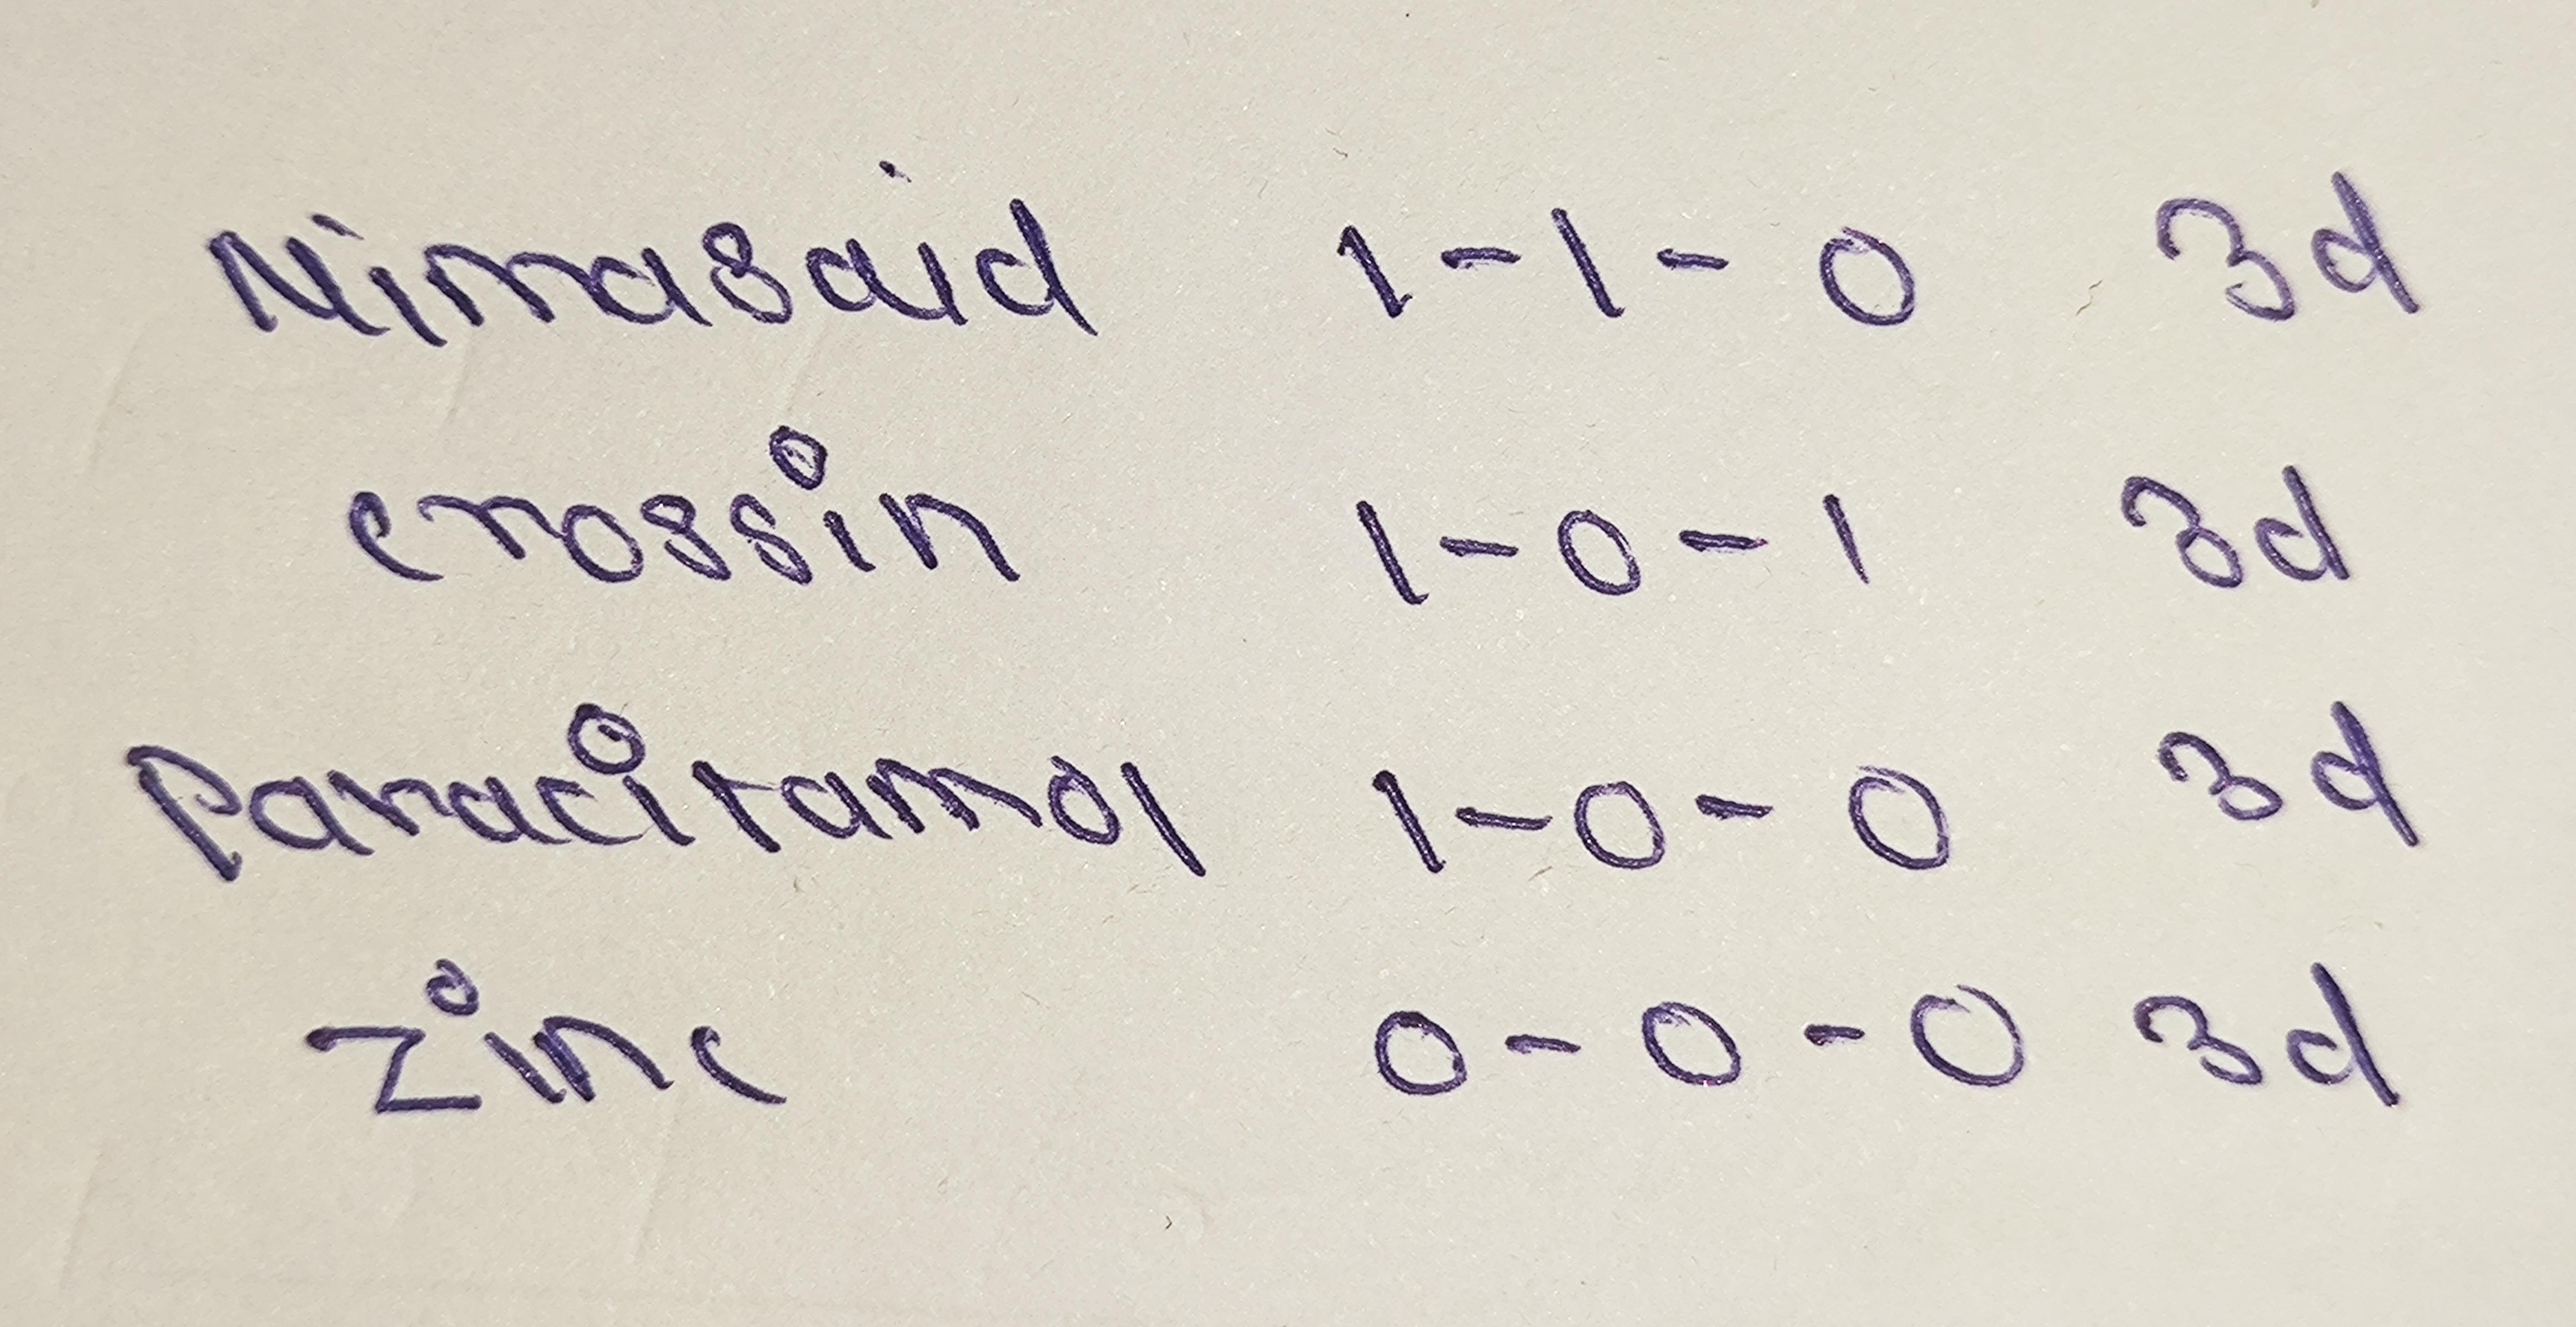 Nimasaid 1-1-0 3d
crossin 1-0-1 3d
Paracitamol 1-0-0 3d
zinc 0-0-0 3d